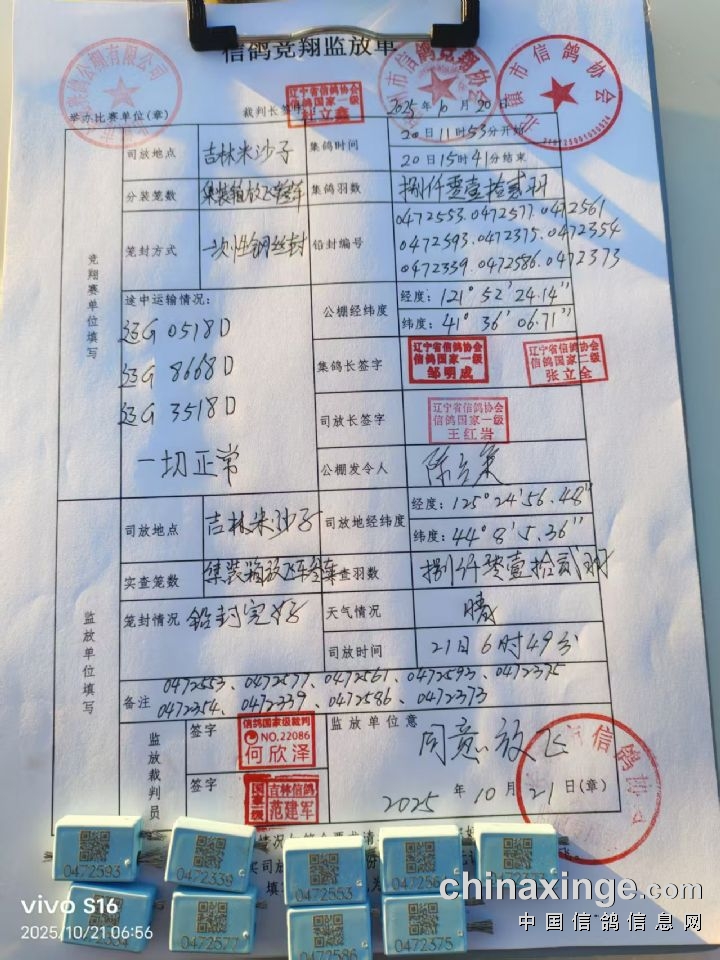 信鸽竞翔监放单
举办比赛单位(章) 裁判长签 2025年10月20日
辽宁省信鸽协会
信鸽国家一级
竞翔赛单位填写
司放地点 吉林米沙子 集鸽时间 20日11时53分开始
20日15时41分结束
分装笼数 集装箱放飞车 集鸽羽数 捌仟零壹拾贰羽
笼封方式 一次性钢丝封 铅封编号 0472553.0472577.0472561
0472593.0472375.0472354
0472339.0472586.0472373
途中运输情况:
辽G 0518D
辽G 8668D
辽G 3518D
一切正常
公棚经纬度 经度: 121° 52′ 24.14″
纬度: 41° 36′ 06.71″
集鸽长签字 辽宁省信鸽协会 信鸽国家一级 邹明成
辽宁省信鸽协会 信鸽国家二级 张立全
司放长签字 辽宁省信鸽协会 信鸽国家一级 王红岩
公棚发令人
监放单位填写
司放地点 吉林米沙子 司放地经纬度 经度: 125° 24′ 56.48″
纬度: 44° 8′ 5.36″
实查笼数 集装箱放飞车叁车 查羽数 捌仟零壹拾贰羽
笼封情况 铅封完好 天气情况 晴
司放时间 21日6时49分
备注 0472553、0472577、0472561、0472593、0472375
0472354、0472339、0472586、0472373
监放裁判员
签字 信鸽国家级裁判 NO.22086 何欣泽
签字 国家一级 吉林信鸽 范建军
监放单位意
同意放飞
2025年10月21日(章)
0472593
0472339
0472553
0472577
0472586
0472375
vivo S16
2025/10/21 06:56
chinaxinge.com
中国信鸽信息网